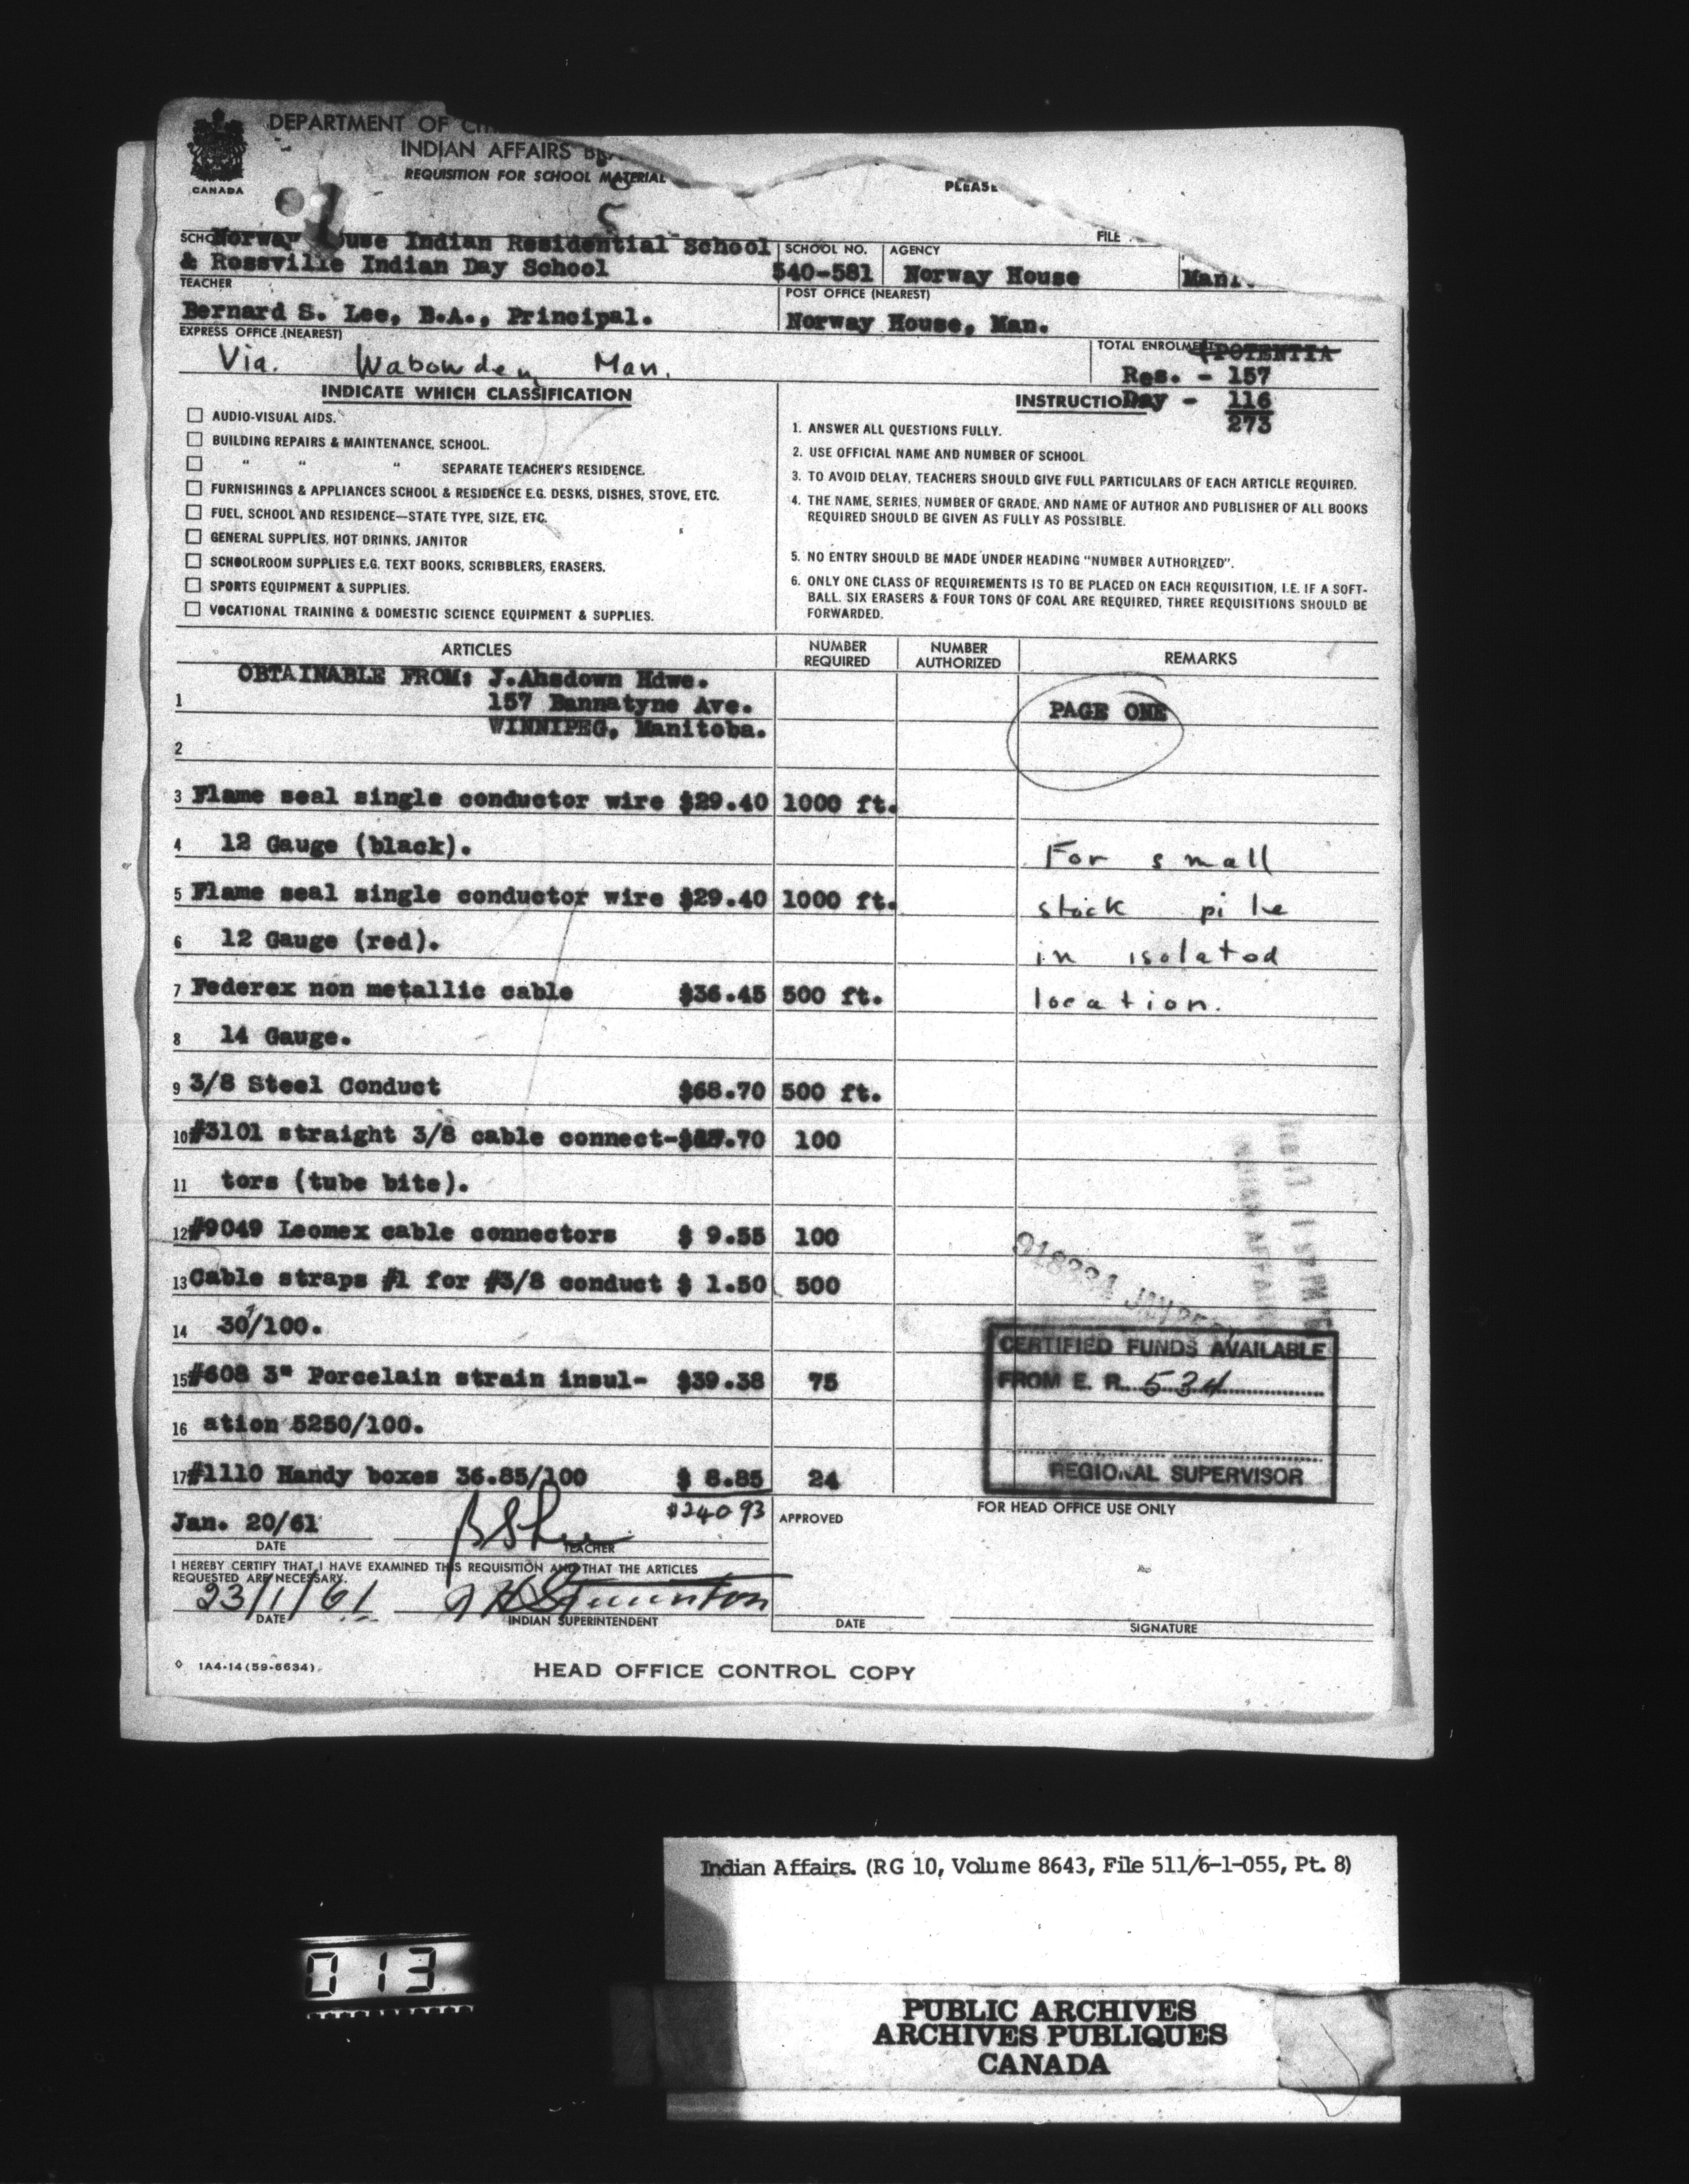 DEPARTMENT OF
INDIAN AFFAIRS
REQUISITION FOR SCHOOL MATERIAL
CANADA
PLEASE
FILE
Norway House Indian Residential School
& Rossville Indian Day School
SCHOOL NO.
540-581
AGENCY
Norway House
Man.
TEACHER
Bernard S. Lee, B.A., Principal.
POST OFFICE (NEAREST)
Norway House, Man.
EXPRESS OFFICE (NEAREST)
Via. Wabowden Man.
TOTAL ENROLMENT
Res. - 157
Day - 116
273
INDICATE WHICH CLASSIFICATION
AUDIO-VISUAL AIDS.
BUILDING REPAIRS & MAINTENANCE, SCHOOL.
" " " SEPARATE TEACHER'S RESIDENCE.
FURNISHINGS & APPLIANCES SCHOOL & RESIDENCE E.G. DESKS, DISHES, STOVE, ETC.
FUEL, SCHOOL AND RESIDENCE—STATE TYPE, SIZE, ETC.
GENERAL SUPPLIES, HOT DRINKS, JANITOR
SCHOOLROOM SUPPLIES E.G. TEXT BOOKS, SCRIBBLERS, ERASERS.
SPORTS EQUIPMENT & SUPPLIES.
VOCATIONAL TRAINING & DOMESTIC SCIENCE EQUIPMENT & SUPPLIES.
INSTRUCTIONS
1. ANSWER ALL QUESTIONS FULLY.
2. USE OFFICIAL NAME AND NUMBER OF SCHOOL
3. TO AVOID DELAY, TEACHERS SHOULD GIVE FULL PARTICULARS OF EACH ARTICLE REQUIRED.
4. THE NAME, SERIES, NUMBER OF GRADE, AND NAME OF AUTHOR AND PUBLISHER OF ALL BOOKS
REQUIRED SHOULD BE GIVEN AS FULLY AS POSSIBLE.
5. NO ENTRY SHOULD BE MADE UNDER HEADING "NUMBER AUTHORIZED".
6. ONLY ONE CLASS OF REQUIREMENTS IS TO BE PLACED ON EACH REQUISITION, I.E. IF A SOFT-
BALL, SIX ERASERS & FOUR TONS OF COAL ARE REQUIRED, THREE REQUISITIONS SHOULD BE
FORWARDED.
ARTICLES
NUMBER REQUIRED
NUMBER AUTHORIZED
REMARKS
OBTAINABLE FROM: J.Ahsdown Hdwe.
1 157 Bannatyne Ave. PAGE ONE
WINNIPEG, Manitoba.
2
3 Flame seal single conductor wire $29.40 1000 ft.
4 12 Gauge (black). For small
5 Flame seal single conductor wire $29.40 1000 ft. stock pile
6 12 Gauge (red). in isolated
7 Federex non metallic cable $36.45 500 ft. location.
8 14 Gauge.
9 3/8 Steel Conduct $68.70 500 ft.
10 #3101 straight 3/8 cable connect- .70 100
11 tors (tube bite).
12 #9049 Leomex cable connectors $ 9.55 100
13 Cable straps #1 for #3/8 conduct $ 1.50 500
14 30/100.
15 #608 3" Porcelain strain insul- $39.38 75
16 ation 5250/100.
17 #1110 Handy boxes 36.85/100 $ 8.85 24
$240.93
CERTIFIED FUNDS AVAILABLE
FROM E. R. 534
REGIONAL SUPERVISOR
Jan. 20/61
DATE
TEACHER
APPROVED
FOR HEAD OFFICE USE ONLY
I HEREBY CERTIFY THAT I HAVE EXAMINED THIS REQUISITION AND THAT THE ARTICLES
REQUESTED ARE NECESSARY.
23/1/61
DATE
INDIAN SUPERINTENDENT
DATE
SIGNATURE
1A4-14 (59-6634)
HEAD OFFICE CONTROL COPY
Indian Affairs. (RG 10, Volume 8643, File 511/6-1-055, Pt. 8)
013
PUBLIC ARCHIVES
ARCHIVES PUBLIQUES
CANADA